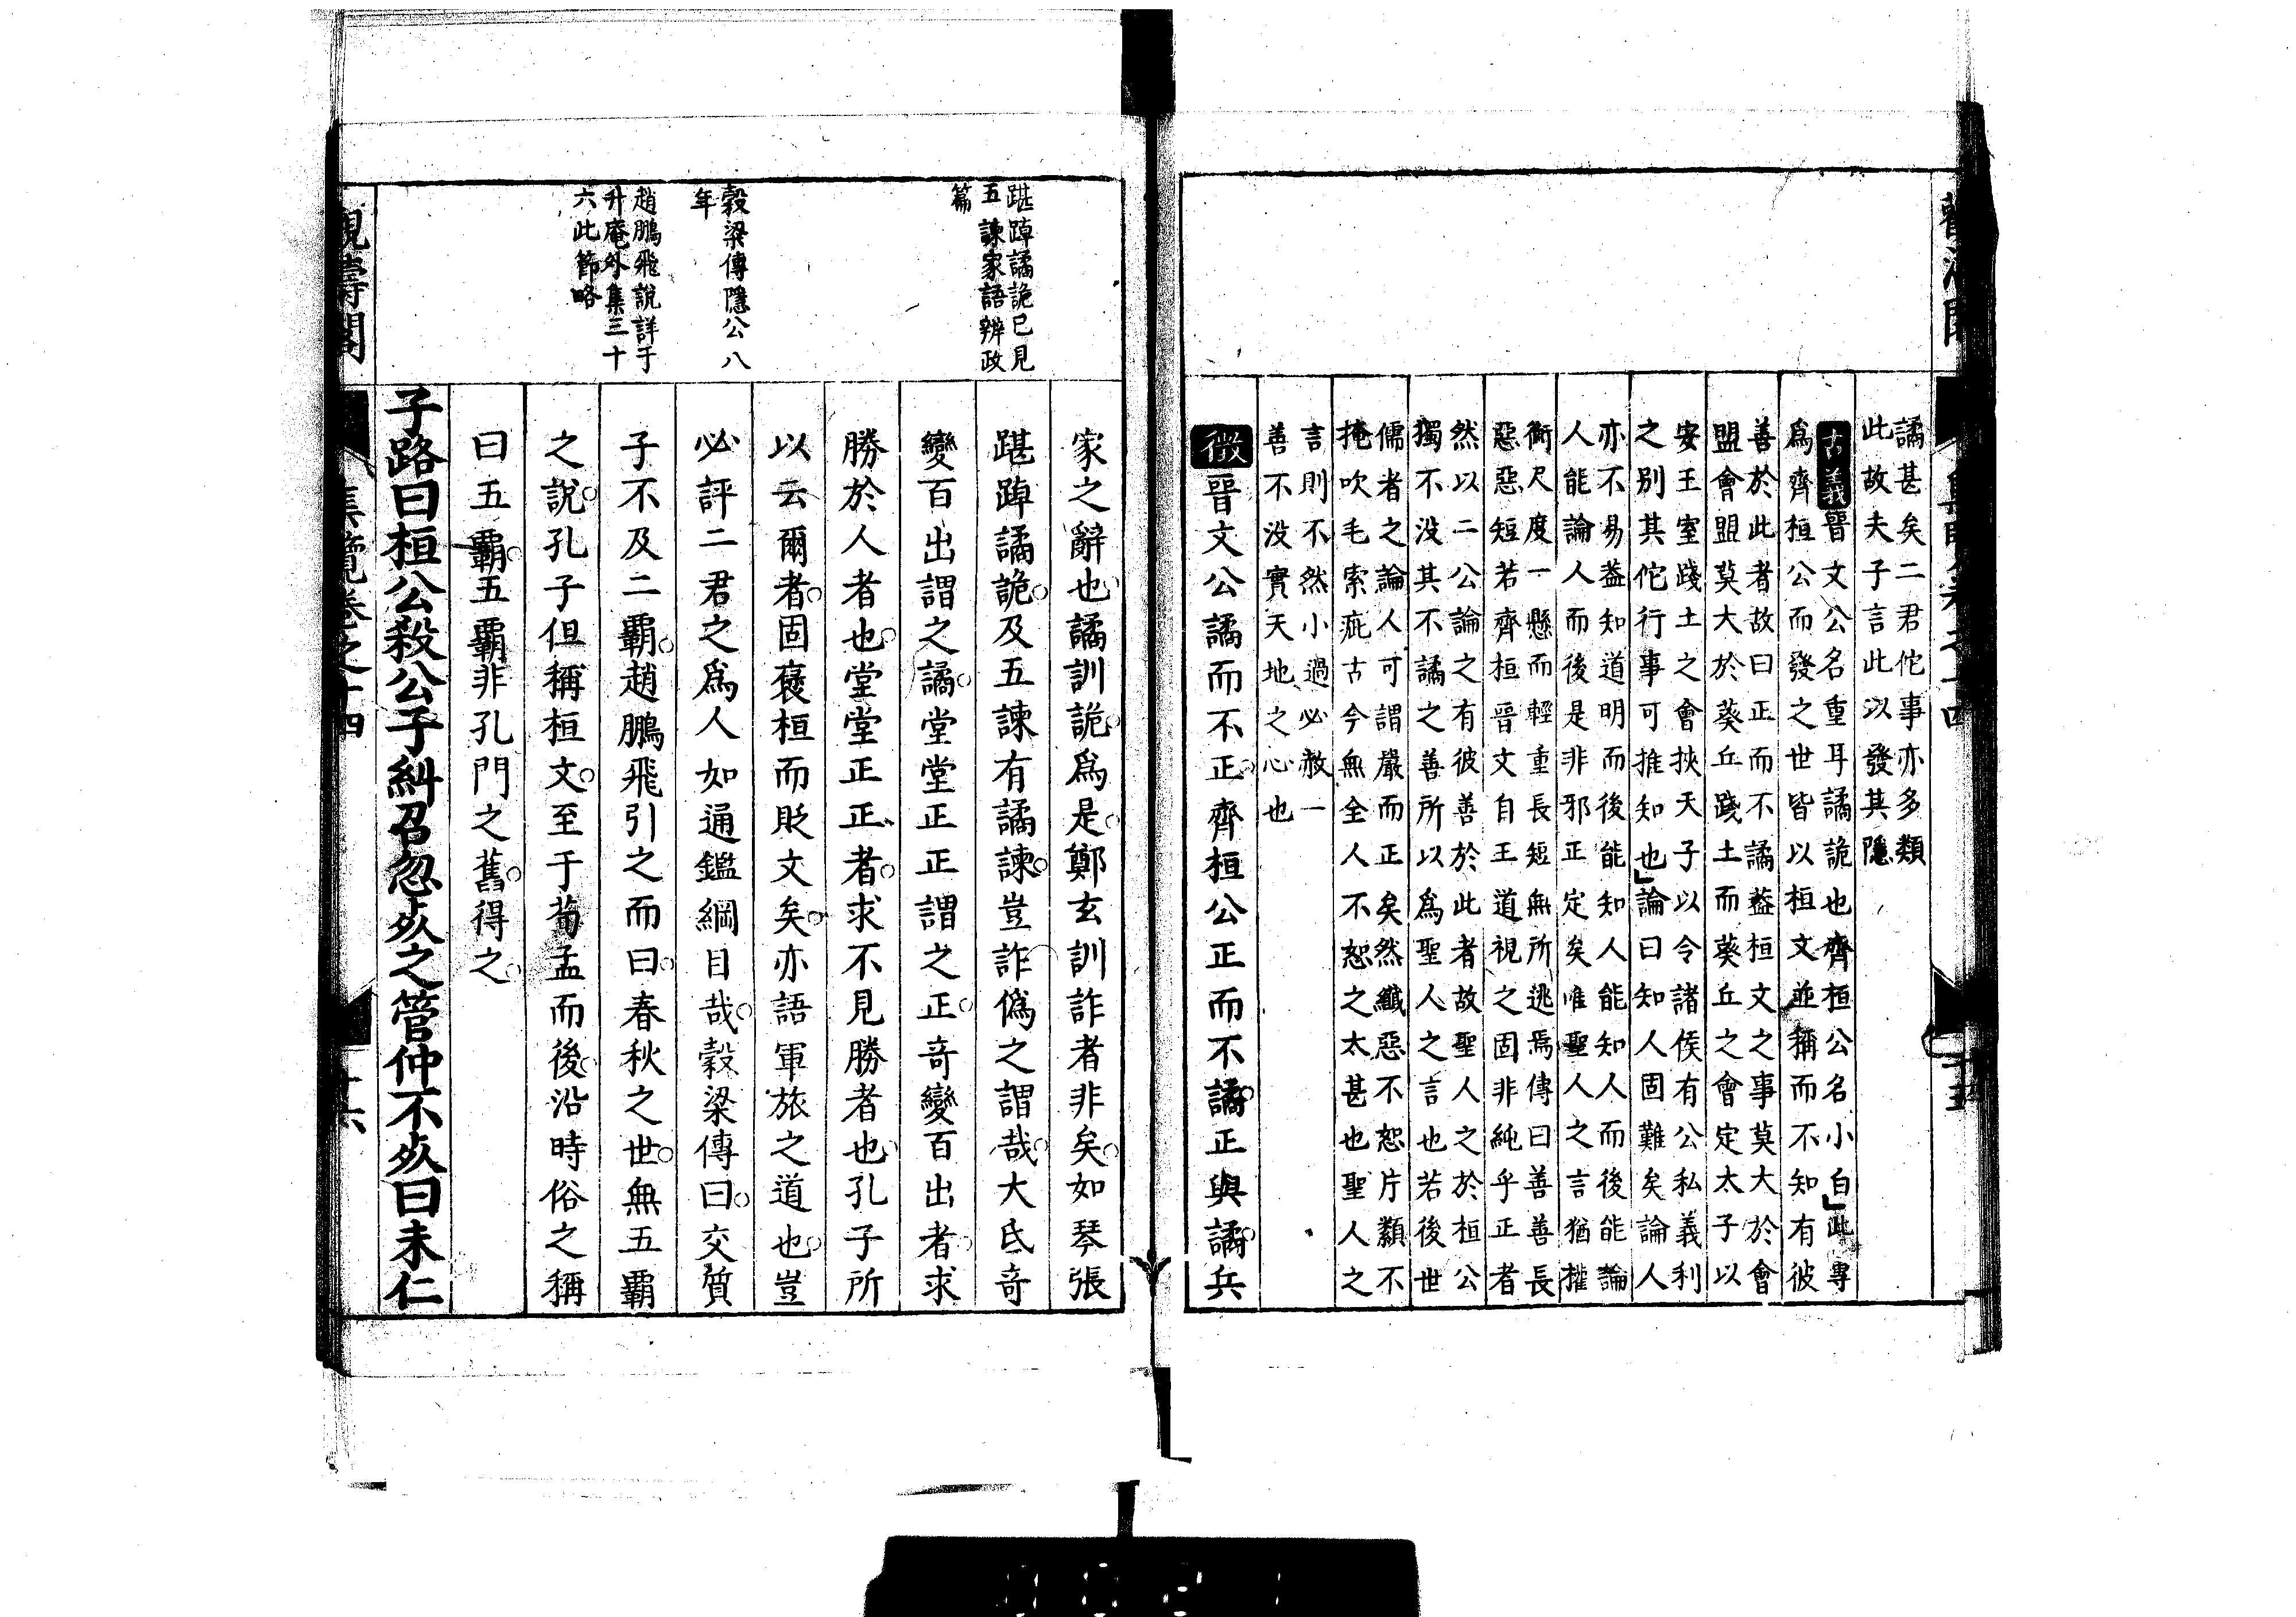 譎甚矣二君佗事亦多類
此故夫子言此以發其隱
古義晉文公名重耳譎詭也齊桓公名小白」此專
爲齊桓公而發之世皆以桓文並稱而不知有彼
善於此者故曰正而不譎蓋桓文之事莫大於會
盟會盟莫大於葵丘踐土而葵丘之會定太子以
安王室踐土之會挾天子以令諸侯有公私義利
之別其佗行事可推知也」論曰知人固難矣論人
亦不易蓋知道明而後能知人能知人而後能論
人能論人而後是非邪正定矣唯聖人之言猶權
衡尺度一懸而輕重長短無所逃焉傳曰善善長
惡惡短若齊桓晉文自王道視之固非純乎正者
然以二公論之有彼善於此者故聖人之於桓公
獨不没其不譎之善所以爲聖人之言也若後世
儒者之論人可謂嚴而正矣然纖惡不恕片纇不
掩吹毛索疵古今無全人不恕之太甚也聖人之
言則不然小過必赦一
善不没實天地之心也
徵晉文公譎而不正齊桓公正而不譎正與譎兵
家之辭也譎訓詭爲是鄭玄訓詐者非矣如琴張
踸踔譎詭及五諫有譎諫豈詐僞之謂哉大氐竒
變百出謂之譎堂堂正正謂之正竒變百出者求
勝於人者也堂堂正正者求不見勝者也孔子所
以云爾者固襃桓而貶文矣亦語軍旅之道也豈
必評二君之爲人如通鑑綱目哉穀梁傳曰交質
子不及二霸趙鵬飛引之而曰春秋之世無五霸
之説孔子但稱桓文至于荀孟而後沿時俗之稱
曰五霸五霸非孔門之舊得之
子路曰桓公殺公子糾召忽死之管仲不死曰未仁
踸踔譎詭已見
五諫家語辨政
篇
穀梁傳隱公八
年
趙鵬飛説詳于
升庵外集三十
六此節略
觀濤閣
集覽卷之十四
十六